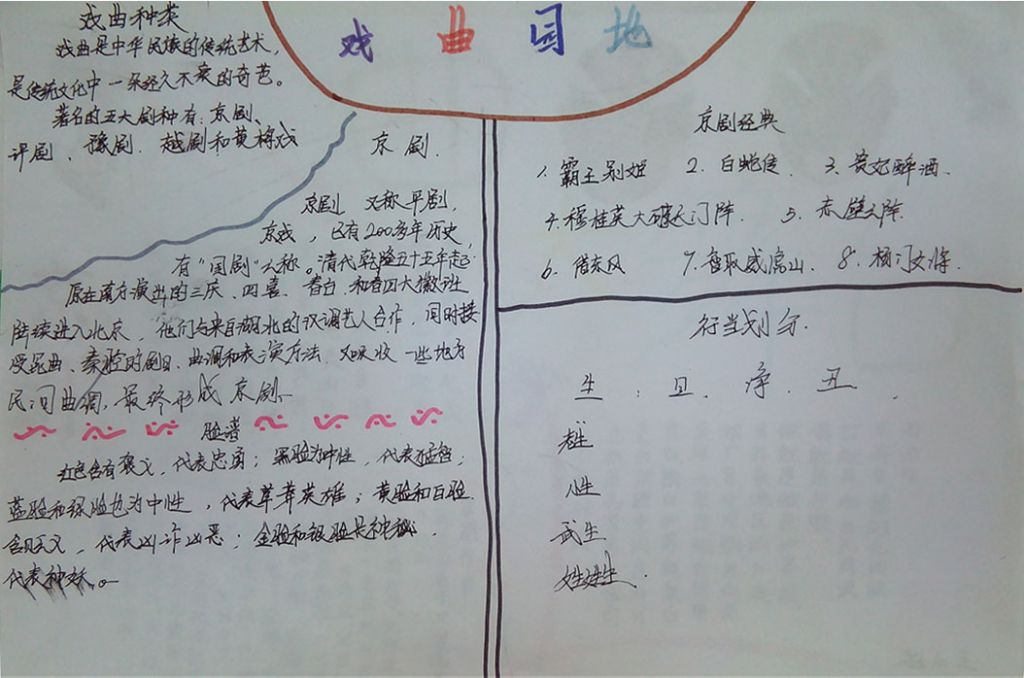 戏曲园地
戏曲种类
戏曲是中华民族的传统艺术,
是传统文化中一朵经久不衰的奇芭。
著名的五大剧种有:京剧、
评剧、豫剧、越剧和黄梅戏
京剧.
京剧 又称平剧,
京戏,已有200多年历史,
有“国剧”之称。清代乾隆五十五年起
原在南方演出的三庆、四喜、春台、和春四大徽班
陆续进入北京,他们与来自湖北的汉调艺人合作,同时接
受昆曲、秦腔的剧目、曲调和表演方法 又吸收一些地方
民间曲调,最终形成京剧。
脸谱
红色含有褒义,代表忠勇;黑脸为中性,代表猛智;
蓝脸和绿脸也为中性,代表草莽英雄;黄脸和白脸
含贬义,代表凶诈凶恶;金脸和银脸是神秘,
代表神妖。
京剧经典
1.霸王别姬 2.白蛇传 3.贵妃醉酒.
4.穆桂英大破天门阵. 5.
6.借东风 7.智取威虎山. 8.
行当划分.
生:旦.净.丑.
老生
小生
武生
娃娃生.